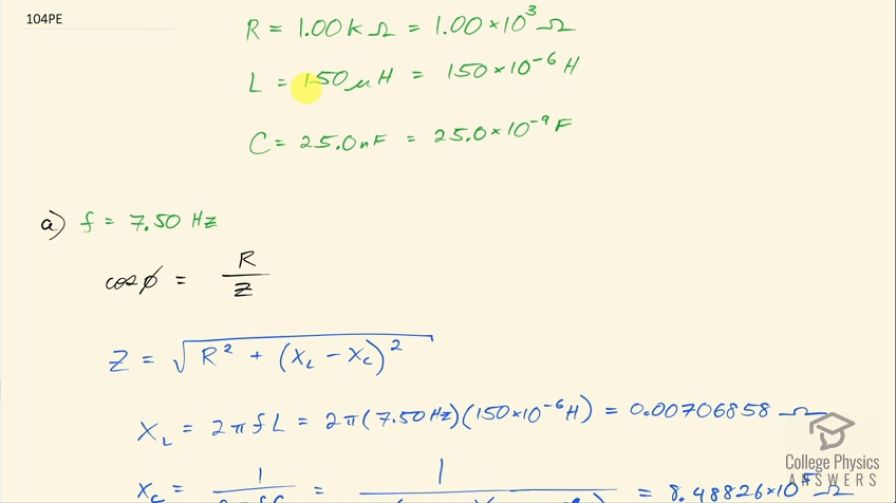 104PE
R = 1.00 k Ω = 1.00 × 10³ Ω
L = 150 μH = 150 × 10⁻⁶ H
C = 25.0 nF = 25.0 × 10⁻⁹ F
a) f = 7.50 Hz
cos φ = R / Z
Z = √(R² + (X_L − X_C)²)
X_L = 2πfL = 2π(7.50 Hz)(150×10⁻⁶ H) = 0.00706858 Ω
X_C = 1 / = 1 / = 8.48826×10⁵ Ω
College Physics
ANSWERS